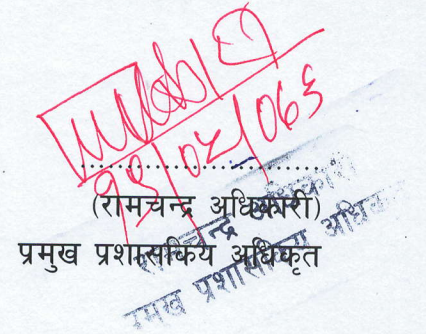 (रामचन्द्र अधिकारी)
प्रमुख प्रशासकिय अधिकृत
रामचन्द्र अधिकारी
प्रमुख प्रशासकिय अधिकृत